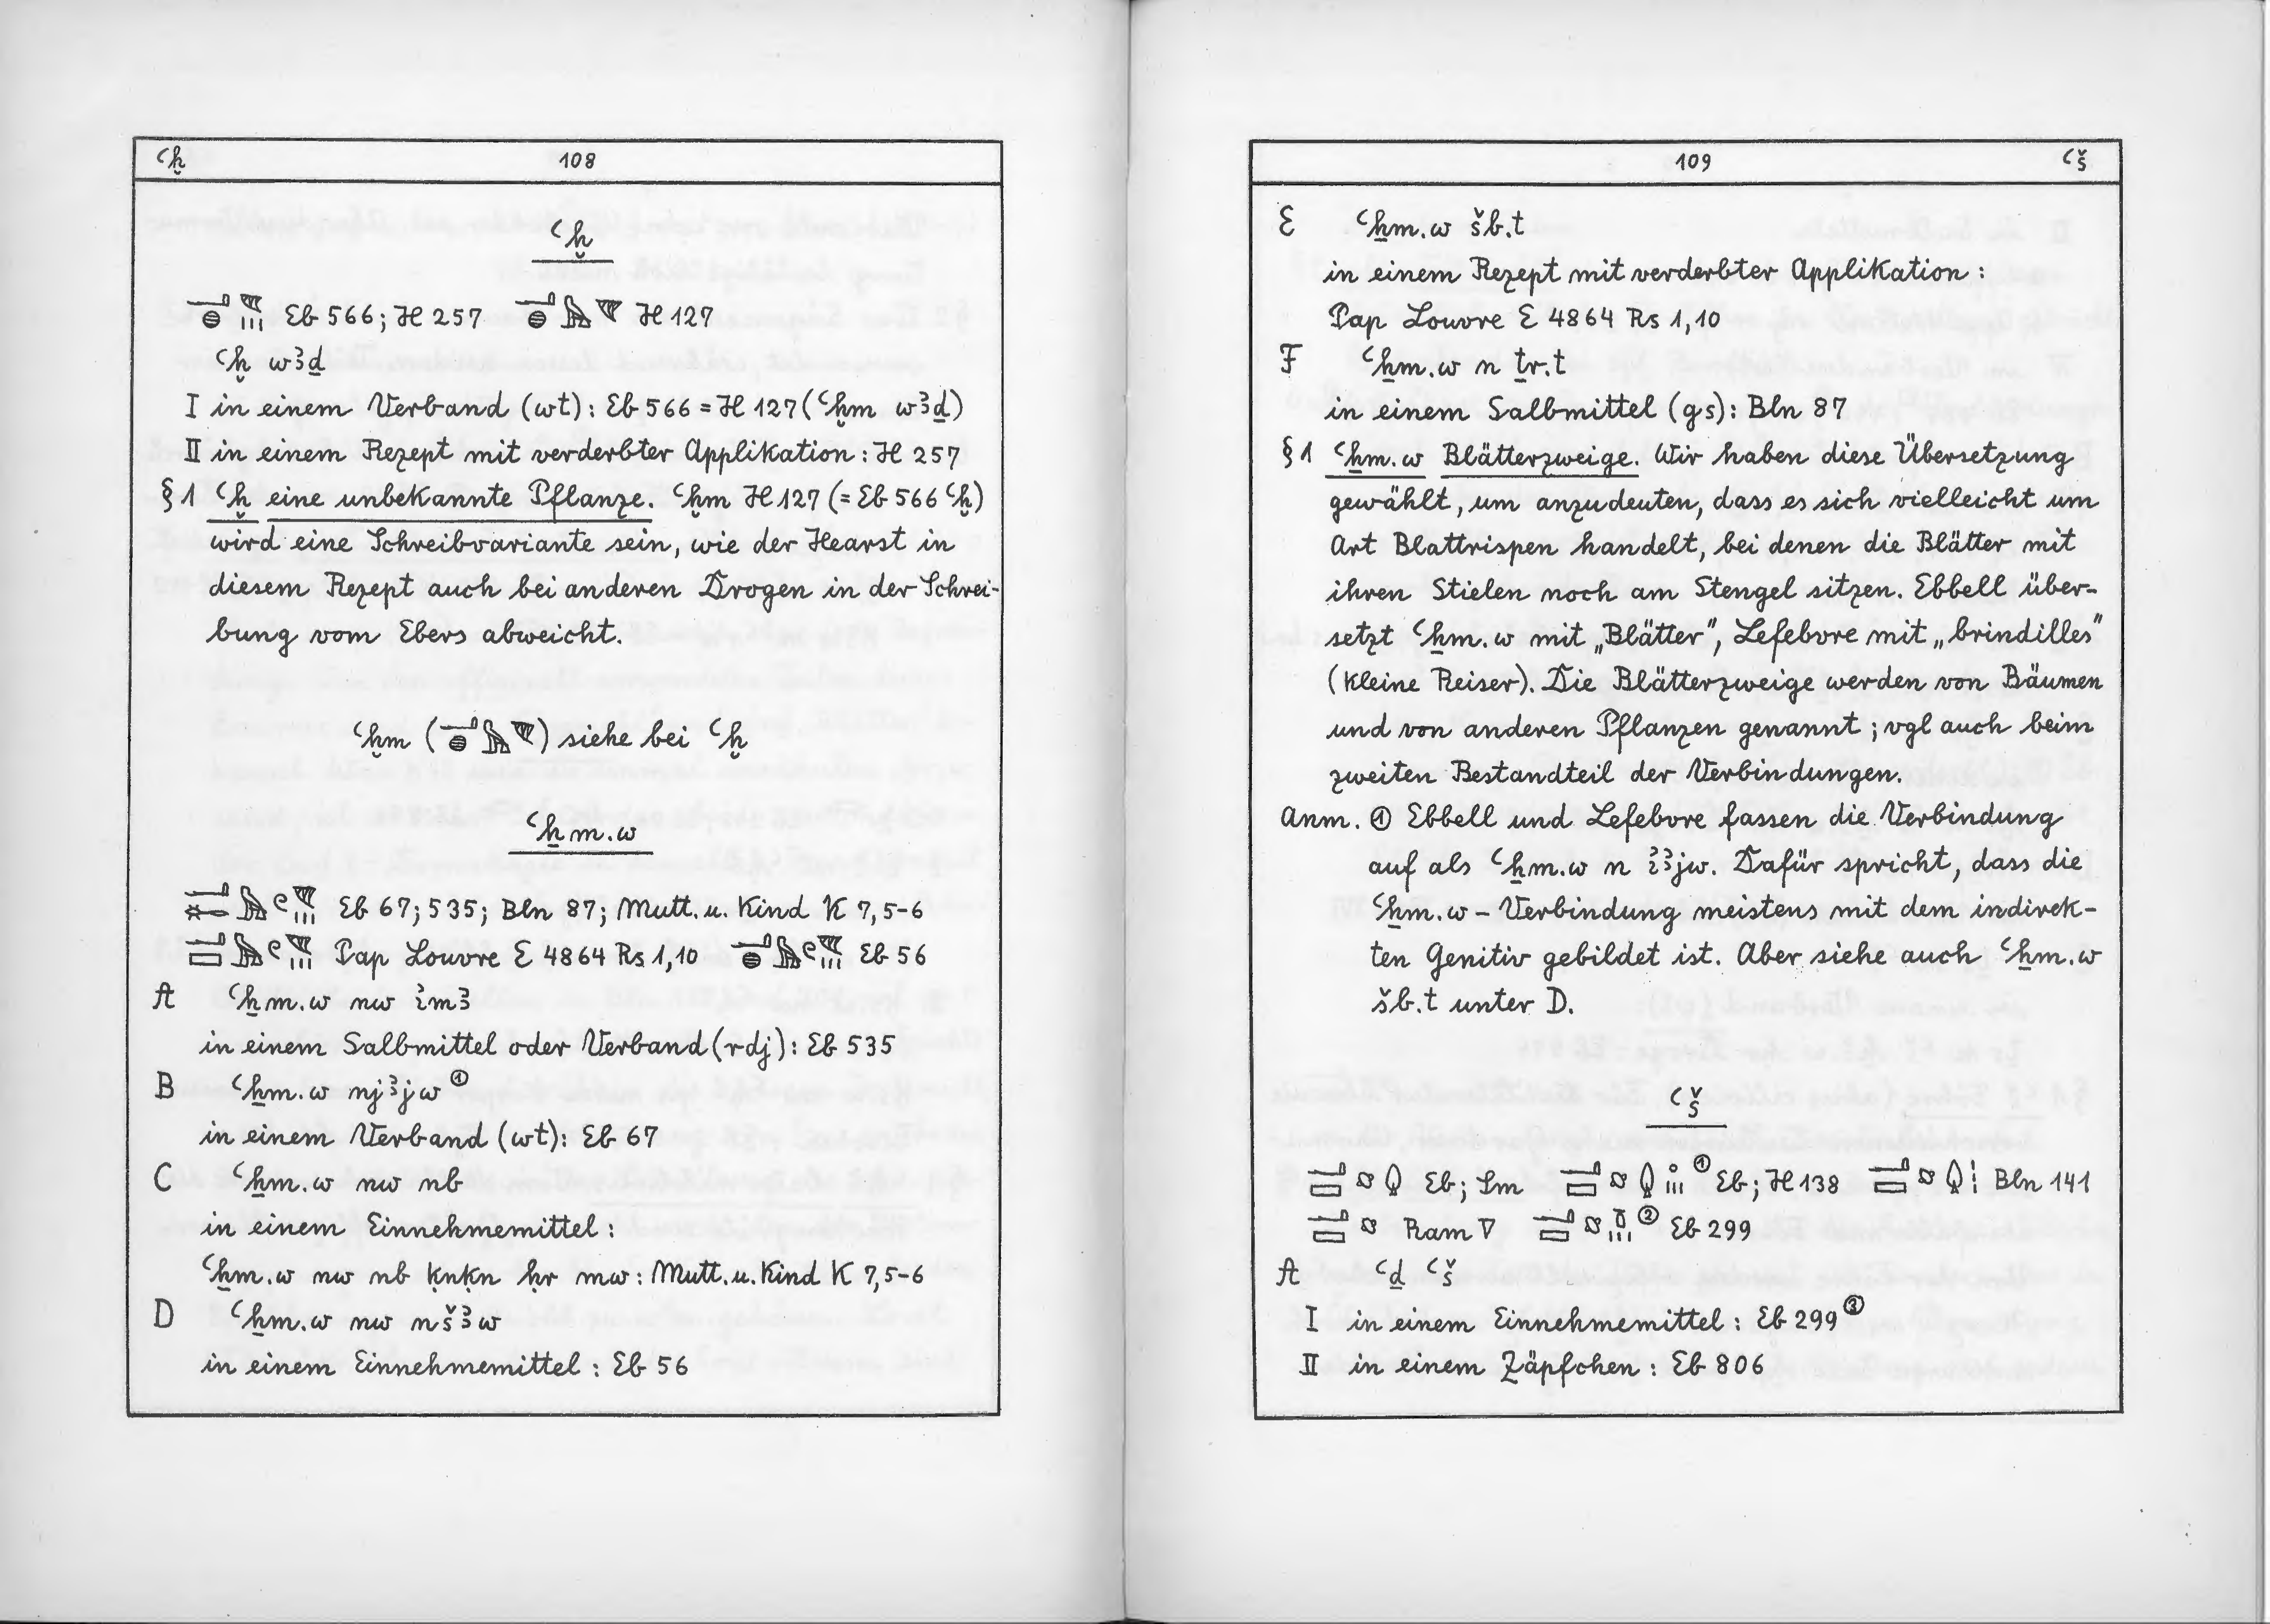 ꜥḫ 108
ꜥḫ
𓂝𓐍𓇛𓏥 Eb 566; H 257 𓂝𓐍𓅓𓇛 H 127
ꜥḫ wꜣḏ
I in einem Verband (wt): Eb 566 = H 127 (ꜥḫm wꜣḏ)
II in einem Rezept mit verderbter Applikation: H 257
§ 1 ꜥḫ eine unbekannte Pflanze. ꜥḫm H 127 (= Eb 566 ꜥḫ)
wird eine Schreibvariante sein, wie der Hearst in
diesem Rezept auch bei anderen Drogen in der Schrei-
bung vom Ebers abweicht.
ꜥḫm (𓂝𓐍𓅓𓇛) siehe bei ꜥḫ
ꜥẖm.w
𓂝𓄡𓅓𓏲𓇛𓏥 Eb 67; 535; Bln 87; Mutt. u. Kind K 7,5-6
𓂝𓈙𓅓𓏲𓇛𓏥 Pap Louvre E 4864 Rs 1,10 𓂝𓐍𓅓𓏲𓇛𓏥 Eb 56
A ꜥẖm.w nw ı͗mꜣ
in einem Salbmittel oder Verband (rdj): Eb 535
B ꜥẖm.w njꜣjw ①
in einem Verband (wt): Eb 67
C ꜥẖm.w nw nb
in einem Einnehmemittel:
ꜥẖm.w nw nb ḳnḳn ḥr mw: Mutt. u. Kind K 7,5-6
D ꜥẖm.w nw nšꜣw
in einem Einnehmemittel: Eb 56
109 ꜥš
E ꜥẖm.w šb.t
in einem Rezept mit verderbter Applikation:
Pap Louvre E 4864 Rs 1,10
F ꜥẖm.w n ṯr.t
in einem Salbmittel (gs): Bln 87
§ 1 ꜥẖm.w Blätterzweige. Wir haben diese Übersetzung
gewählt, um anzudeuten, dass es sich vielleicht um
Art Blattrispen handelt, bei denen die Blätter mit
ihren Stielen noch am Stengel sitzen. Ebbell über-
setzt ꜥẖm.w mit „Blätter", Lefebvre mit „brindilles"
(kleine Reiser). Die Blätterzweige werden von Bäumen
und von anderen Pflanzen genannt; vgl auch beim
zweiten Bestandteil der Verbindungen.
Anm. ① Ebbell und Lefebvre fassen die Verbindung
auf als ꜥẖm.w n ı͗ꜣjw. Dafür spricht, dass die
ꜥẖm.w-Verbindung meistens mit dem indirek-
ten Genitiv gebildet ist. Aber siehe auch ꜥẖm.w
šb.t unter D.
ꜥš
Eb; Sm ① Eb; H 138 Bln 141
Ram V ② Eb 299
A ꜥḏ ꜥš
I in einem Einnehmemittel: Eb 299 ③
II in einem Zäpfchen: Eb 806